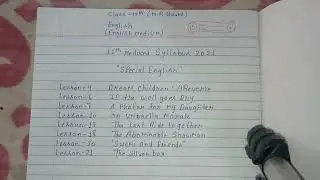 Class - 11th (M.P. Board)
English
(English Medium)
11th Reduced Syllabus 2021
"Special English"
Lesson - 4 Dream Children : A Reverie
Lesson - 6 If the well goes Dry
Lesson - 7 A Prayer for My Daughter
Lesson - 10 On Umbrella Morals
Lesson - 17 The Last Ride together
Lesson - 18 The Abominable Snowman
Lesson - 20 "Swami and friends"
Lesson - 21 The silver box